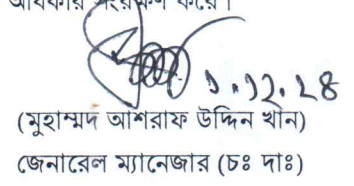 অধিকার সংরক্ষণ করে।
১.১২.২৪
(মুহাম্মদ আশরাফ উদ্দিন খান)
জেনারেল ম্যানেজার (চঃ দাঃ)